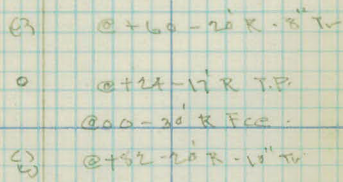 @ +60 - 20' R - 8" Tr
@ +24 - 17' R T.P.
@ 00 - 30' R Fce.
@ +82 - 20' R - 10" Tr